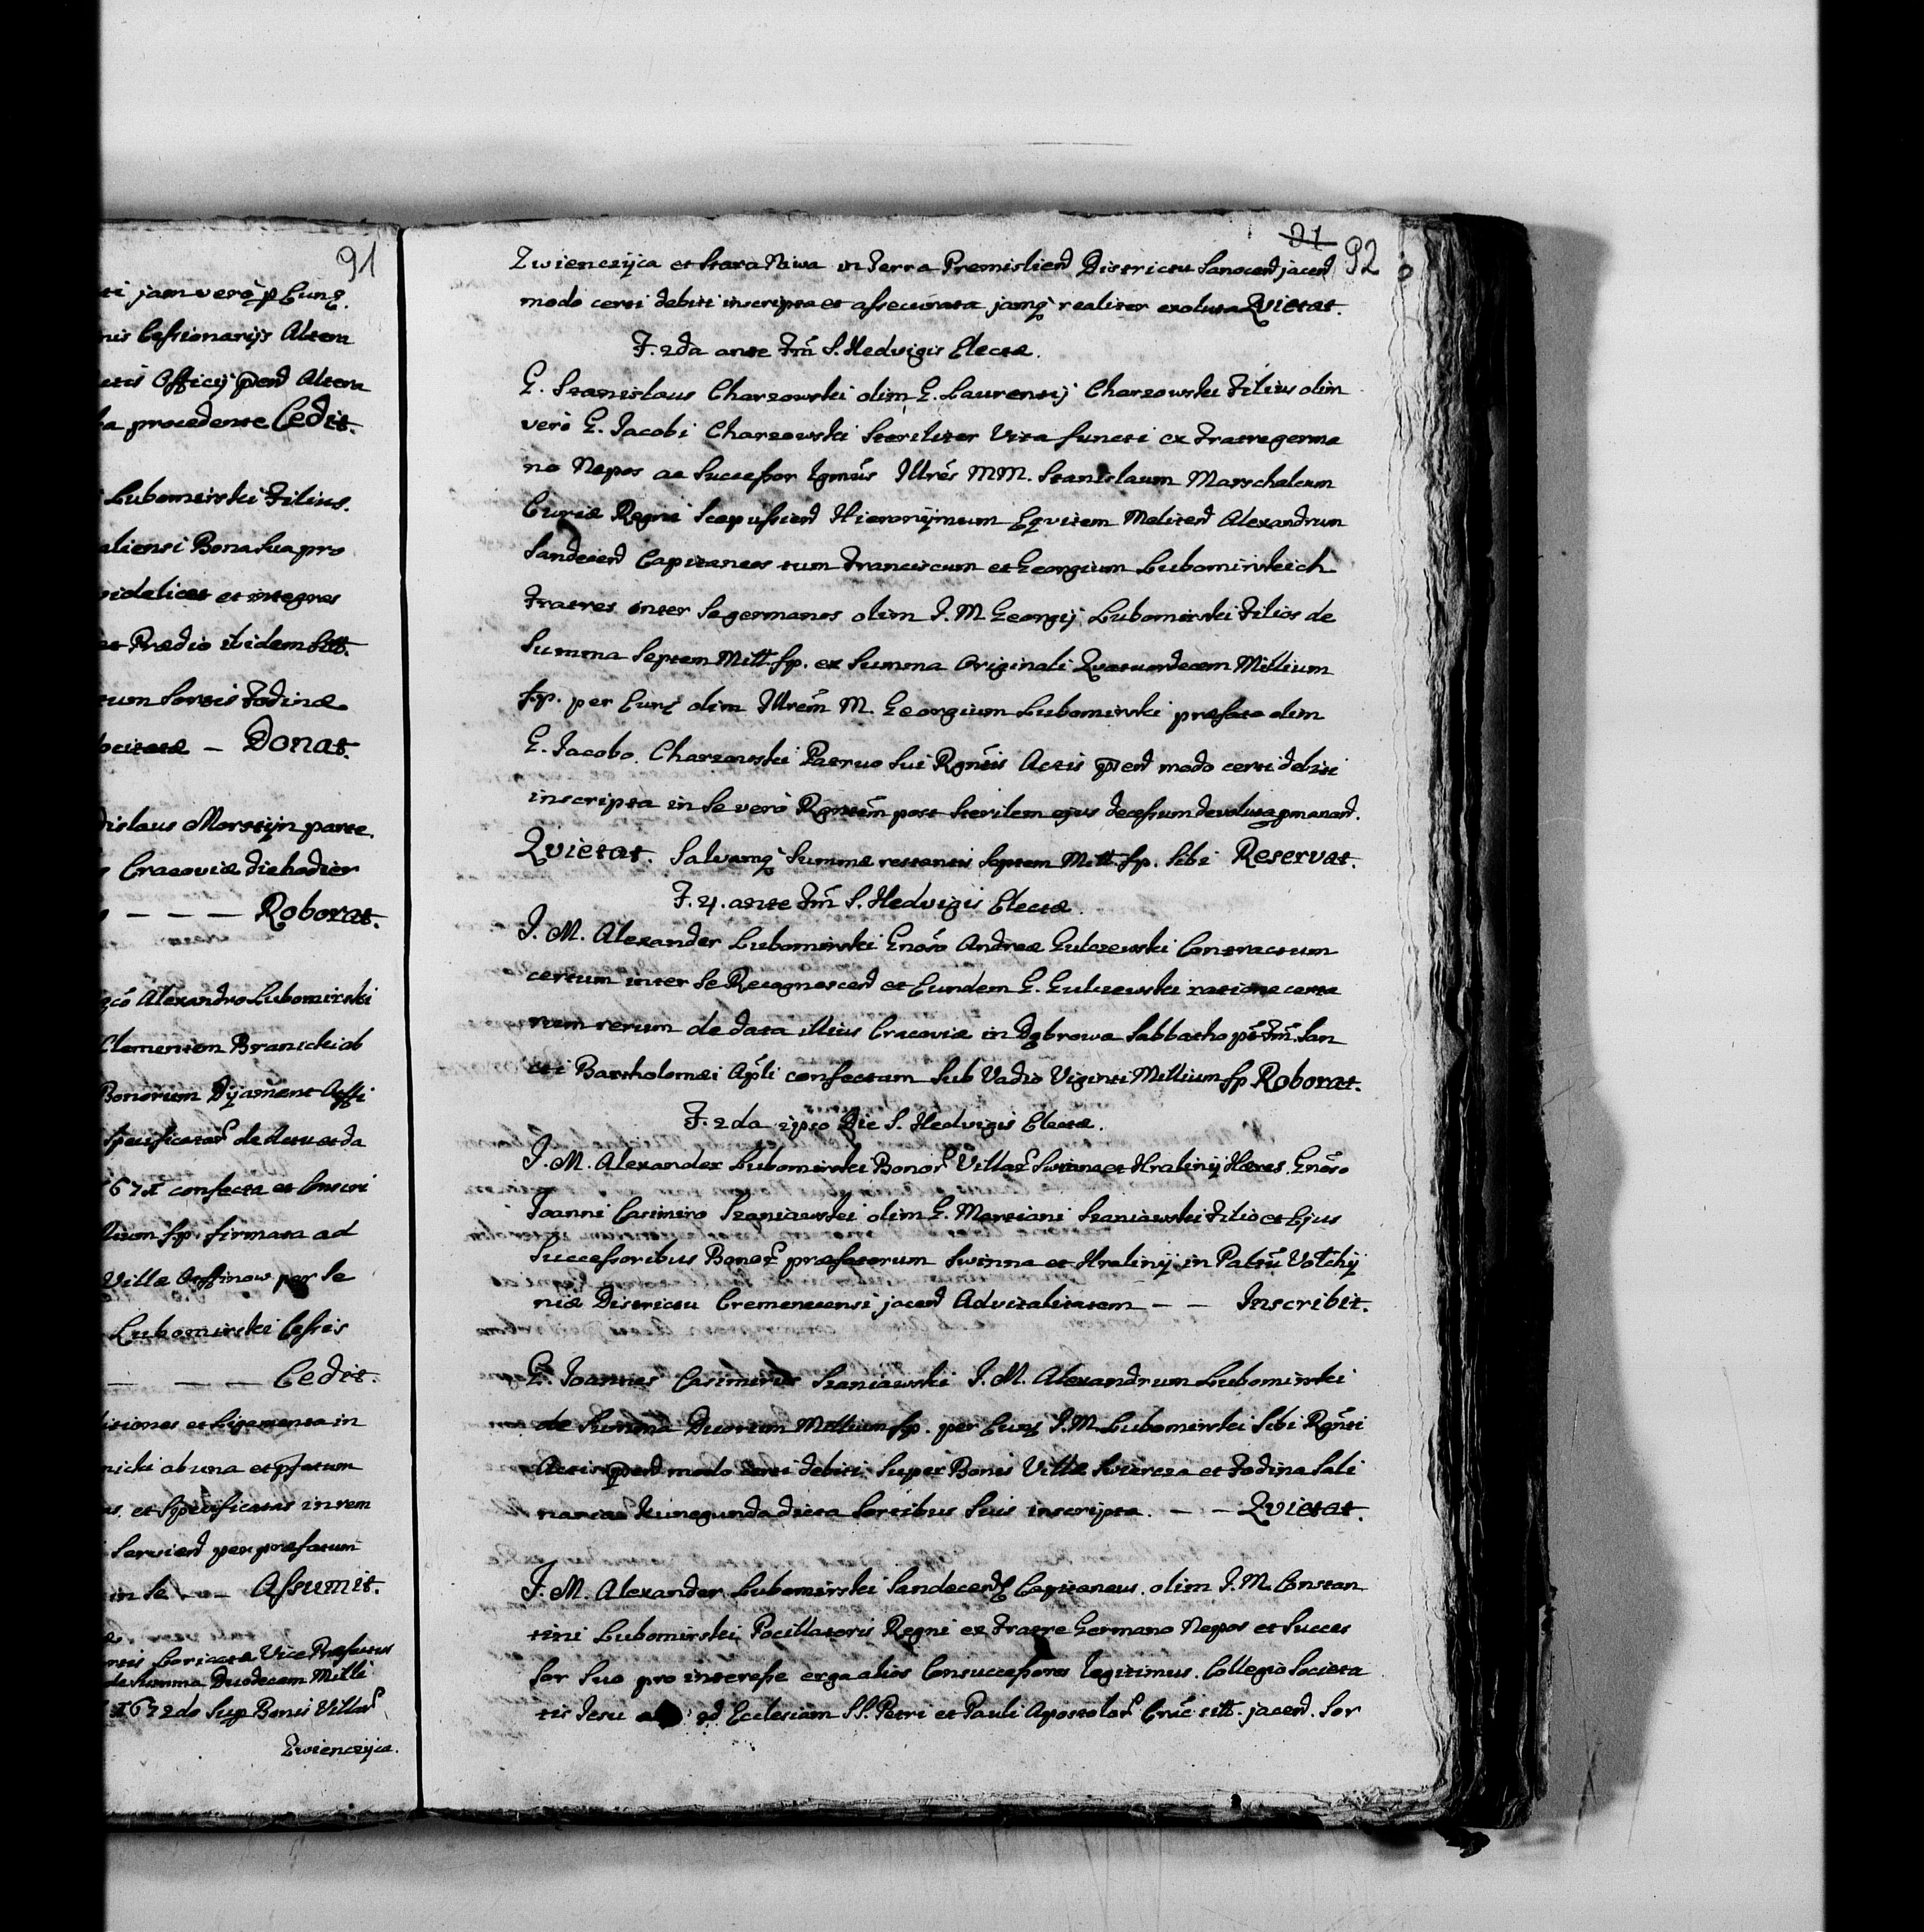 91
ti jam verò p Eunq.
nis Cessionarijs Altera
Officij pend Altera
a procedente Cedit.
Lubomirski Filius.
aliensi Bona sua pro
videlicet et integras
et Prædio ibidem sitt.
tum Sortis Fodinæ
— Donat.
dislaus Morstyn parte.
Cracoviæ die hodier
— — — Roborat.
Alexandro Lubomirski
Clementem Branicki ab
Bonorum Dyament
specificatar de Actu et da
1671 confecta et Inscri
lium fp. firmata ad
Villæ per se
Lubomirski Cessis
— — — Cedit.
itiones et Ligamenta in
nicki ab una et pfatum
as et Specificatas in rem
Serviend per præfatum
in se — — Assumit.
Vice Præfectus
de Summa Duodecem Mille
1672do Sup Bonis Villar
Zwienczyca.
91 92
Zwienczyca et Stara Niwa in Terra Premislien Districtu Sanocen jacen
modo certi debiti inscripta et assecurata jamq realiter exoluta Quietat.
F. 2da ante Fm S. Hedvigis Electæ.
G. Stanislaus Charzowski olim G. Laurentij Charzowski Filius olim
verò G. Jacobi Charzowski Steriliter Vita functi ex Fratre germa
no Nepos ac Successor Igmūs Illrēs MM. Stanislaum Marschalcum
Curiæ Regni Scepusien Hieronÿmum Eqvitem Maliten Alexandrum
Sandecen Capitaneos tum Franciscum et Georgium Lubomirskich
Fratres inter se germanos olim J. M. Georgij Lubomirski Filios de
Summa Septem Mill. fp. ex Summa Originali Quatuordecem Millium
fp. per Eunq olim Illrem M. Georgium Lubomirski præfato olim
G. Jacobo Charzowski Patruo sui Rgntis Actis pend modo certi debiti
inscripta in se verò Rgntēm post sterilem ejus decessum devoluta pmanand.
Quietat. Salvamq Summæ restantis Septem Mill. fp. Sibi Reservat.
F. 4. ante Fm S. Hedvigis Electæ.
J. M. Alexander Lubomirski Gnōso Andreæ Gulczewski Contractum
certum inter se Recognoscen et Eundem G. Gulczewski ratione certa
rum rerum de data illius Cracoviæ in Dąbrowa Sabbatho pt Fm San
cti Bartholomæi Apli confectam sub Vadio Viginti Millium fp Roborat.
F. 2da ipso Die S. Hedvigis Electæ.
J. M. Alexander Lubomirski Bonor Villar Swinna et Hraliny Hæres Gnōso
Joanni Casimiro Szaniawski olim G. Martiani Szaniawski Filio et Ejus
Successoribus Bonor præfatorum Swinna et Hraliny in Paltu Volhÿ
niæ Districtu Cremenecensi jacen Advitalitatem — — Inscribit.
G. Joannes Casimirus Szaniawski J. M. Alexandrum Lubomirski
de Summa Duorum Millium fp. per Eunq J. M. Lubomirski Sibi Rgnti
Actis pend modo certi debiti super Bonis Villæ Swiercza et Fodina Sali
naria Kunegunda dicta Sortibus suis inscripta. — — Quietat.
J. M. Alexander Lubomirski Sandecen Capitaneus olim J. M. Constan
tini Lubomirski Pocillatoris Regni ex Fratre Germano Nepos et Succes
sor suo pro interesse erga alios Consuccessores Legitimus. Collegio Societa
tis Jesu ad Ecclesiam SS. Petri et Pauli Apostolor Crac sitt. jacen. Sor